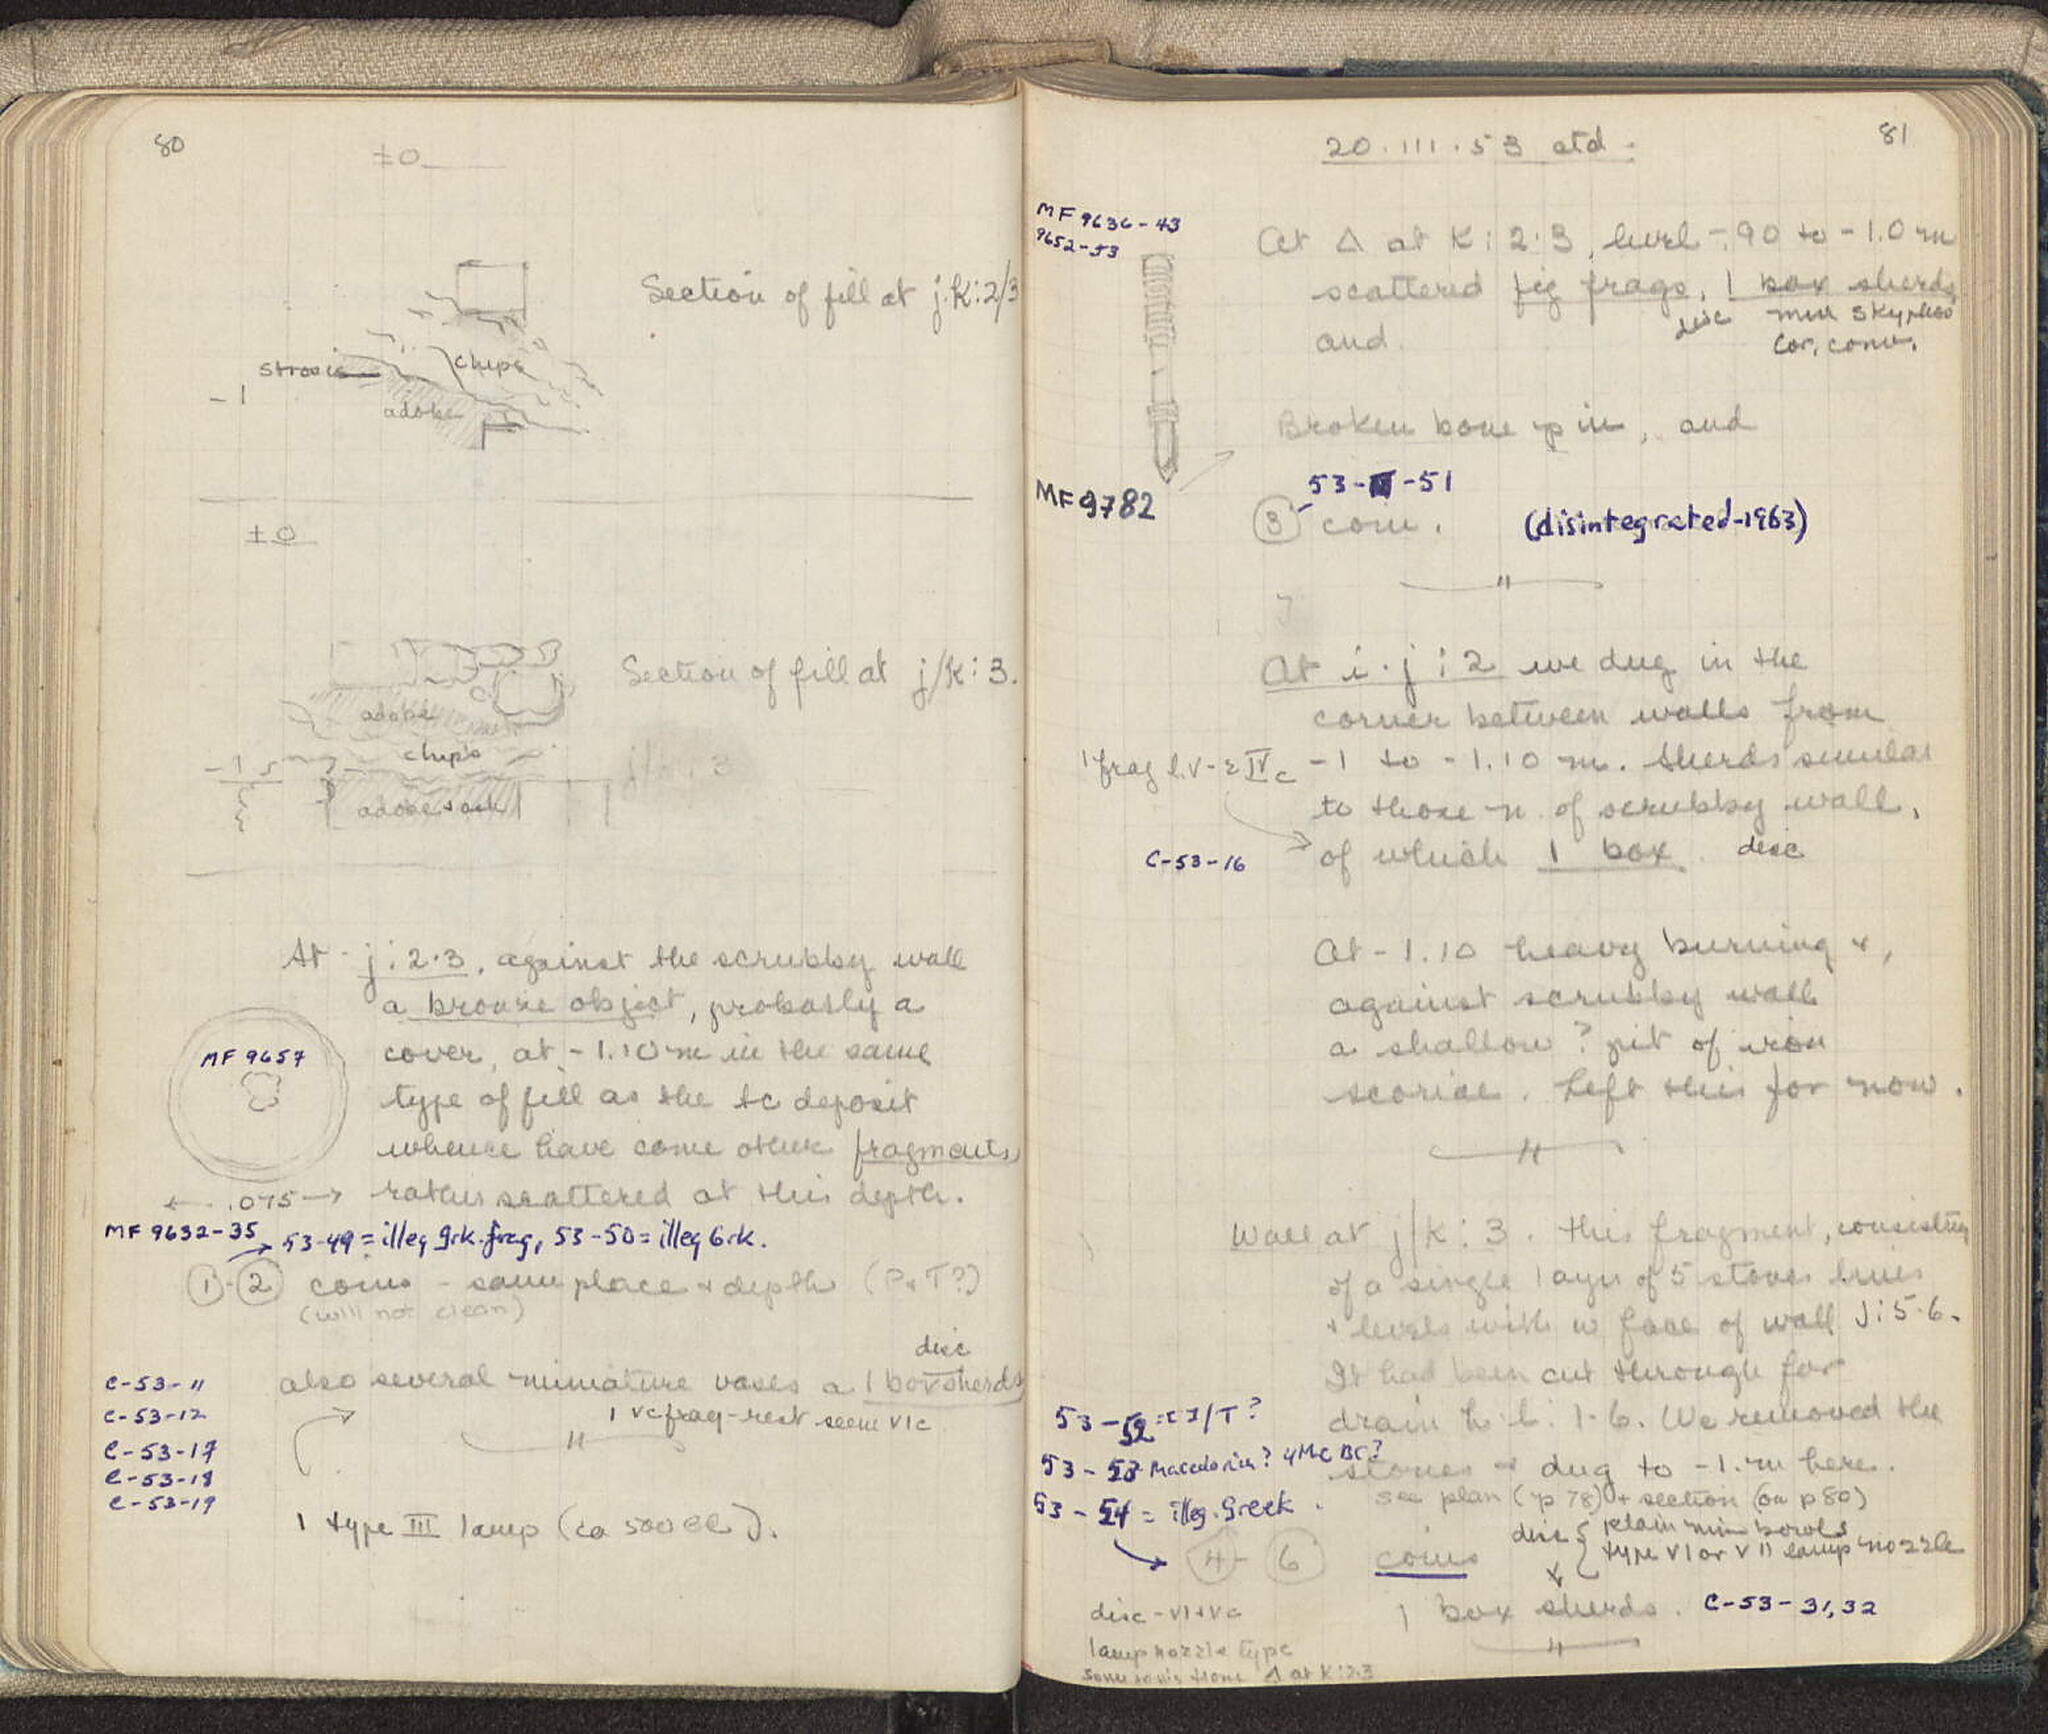 80
±0
Section of fill at j.K:2/3
Strosis
chips
-1
adobe
±0
Section of fill at j/K:3.
adobe
chips
-1
adobe + ash
At j:2.3, against the scrubby wall
a bronze object, probably a
MF 9657
cover, at -1.10 m in the same
type of fill as the tc deposit
whence have come other fragments
.075
rather scattered at this depth.
MF 9632-35
53-49 = illeg grk. frag, 53-50 = illeg Grk.
1-2 coins - same place + depth (P + T?)
(will not clean)
disc
C-53-11
also several miniature vases a 1 box sherds
C-53-12
1 Vc frag - rest seem VIc
C-53-17
C-53-18
C-53-19
1 type III lamp (ca 500 BC).
81
20.III.53 ctd.
MF 9636-43
9652-53
At Δ at K:2.3, level -.90 to -1.0 m
scattered fig frags, 1 box sherds
disc
min skyphos
and
Cor. conv.
Broken bone pin, and
MF 9782
53-51
3 coin.
(disintegrated-1963)
At i.j:2 we dug in the
corner between walls from
1 frag l.V-e IVc
-1 to -1.10 m. Sherds similar
to those n. of scrubby wall,
C-53-16
of which 1 box
disc
At -1.10 heavy burning +,
against scrubby wall
a shallow ? pit of iron
scoriae. Left this for now.
Wall at j/K:3. This fragment, consisting
of a single layer of 5 stones lines
+ levels with w face of wall J:5-6.
It had been cut through for
drain h-l:1-6. We removed the
53-52 = c I/T?
53-53 Macedonian? 4th c BC?
stones + dug to -1. m here.
see plan (p 78) + section (on p 80)
53-54 = illeg. Greek.
disc
retain min bowls
type VI or VII lamp nozzle
4-6 coins
1 box sherds.
C-53-31,32
disc - VI + Vc
lamp nozzle type
same as from Δ at K:2.3